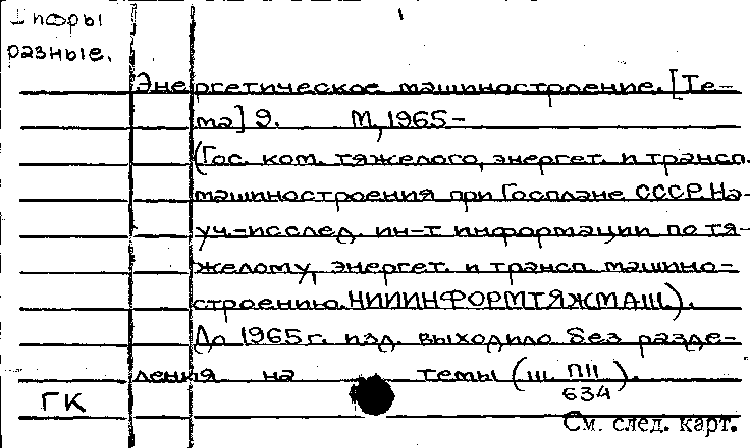 Шифры
разные.
Энергетическое машиностроение. [Те-
ма] 9. М, 1965-
(Гос. ком. тяжелого, энергет. и трансп.
машиностроения при Госплане СССР. На-
уч.-исслед. ин-т информации по тя-
желому, энергет. и трансп. машино-
строению. НИИИНФОРМТЯЖМАШ.).
До 1965 г. изд. выходило без разде-
ления на темы (ш. ПII
634).
ГК
См. след. карт.